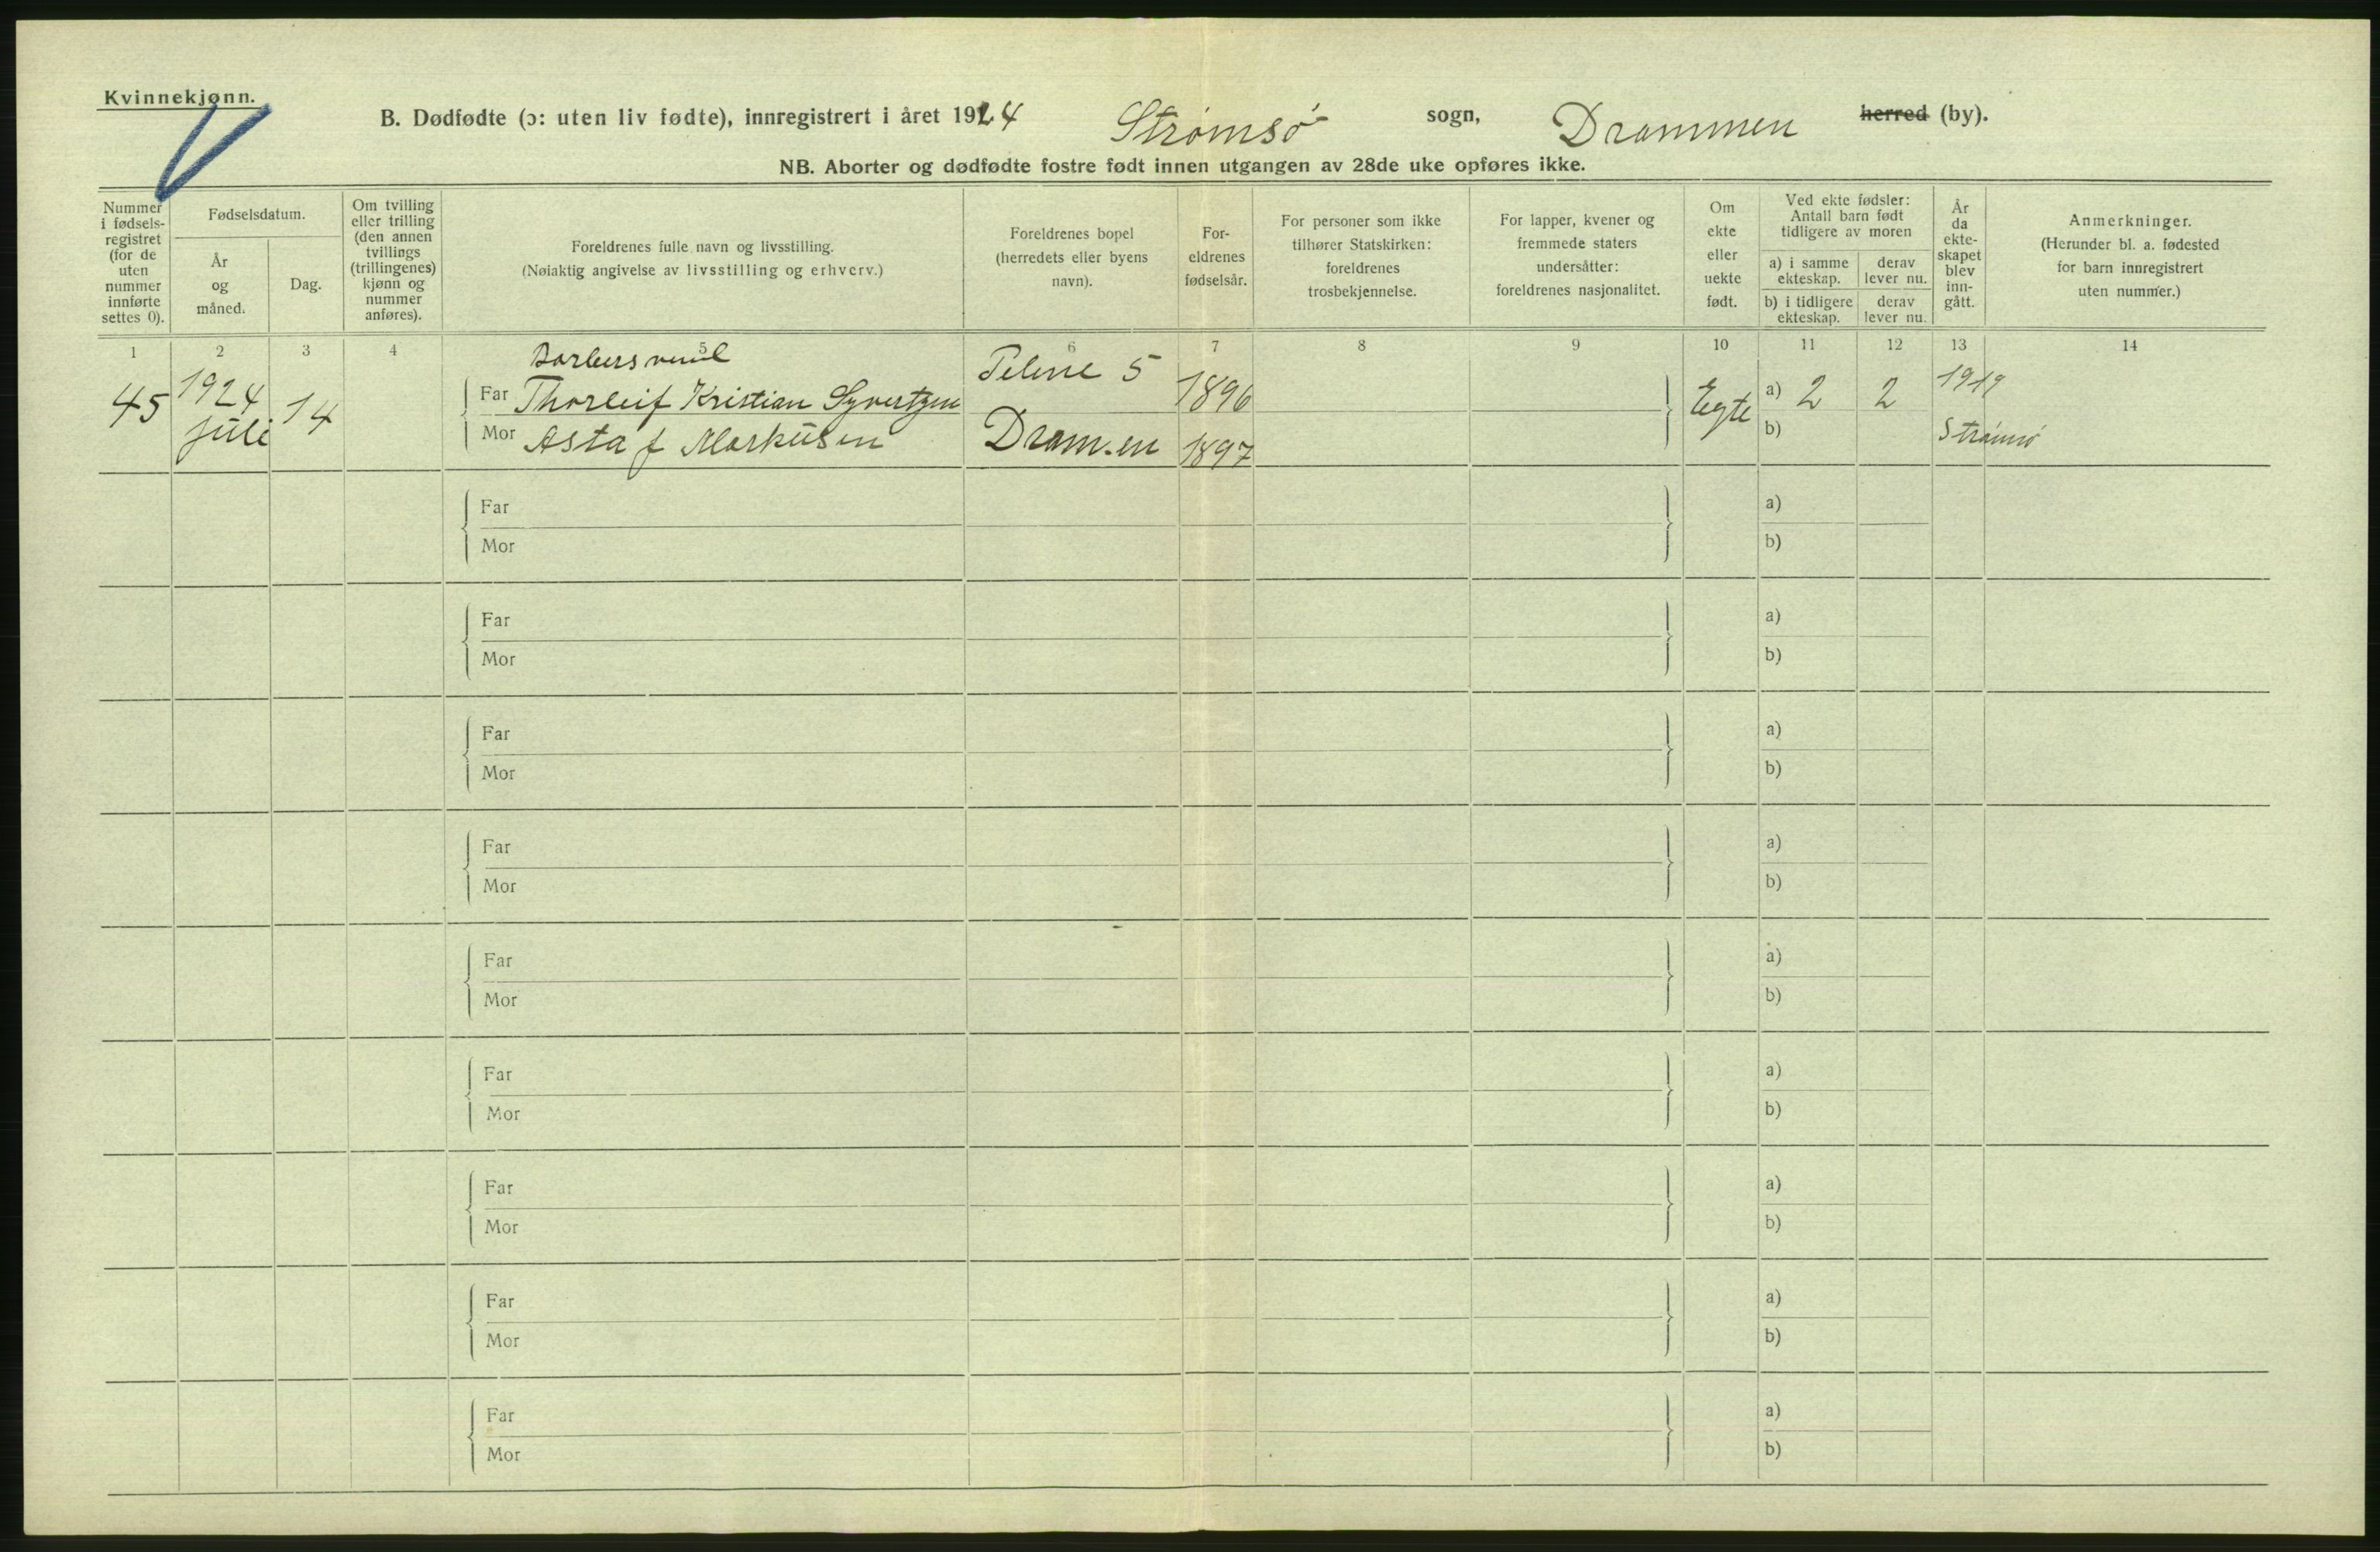 Kvinnekjønn.
B. Dødfødte (ɔ: uten liv fødte), innregistrert i året 1924 Strømsø sogn, Drammen herred (by).
NB. Aborter og dødfødte fostre født innen utgangen av 28de uke opføres ikke.
Nummer i fødsels- registret (for de uten nummer innførte settes 0).
Fødselsdatum.
År og måned.
Dag.
Om tvilling eller trilling (den annen tvillings (trillingenes) kjønn og nummer anføres).
Foreldrenes fulle navn og livsstilling.
(Nøiaktig angivelse av livsstilling og erhverv.)
Foreldrenes bopel (herredets eller byens navn).
For- eldrenes fødselsår.
For personer som ikke tilhører Statskirken: foreldrenes trosbekjennelse.
For lapper, kvener og fremmede staters undersåtter: foreldrenes nasjonalitet.
Om ekte eller uekte født.
Ved ekte fødsler: Antall barn født tidligere av moren
a) i samme ekteskap.
derav lever nu.
b) i tidligere ekteskap.
derav lever nu.
År da ekte- skapet blev inn- gått.
Anmerkninger.
(Herunder bl. a. fødested for barn innregistrert uten nummer.)
1 2 3 4 5 6 7 8 9 10 11 12 13 14
45 1924 juli 14
Far Thorleif Kristian Syvertzen 5 1896 Egte a) 2 2 1919
Mor Asta f Markusen Drammen 1897 b) Strømsø
Far a)
Mor b)
Far a)
Mor b)
Far a)
Mor b)
Far a)
Mor b)
Far a)
Mor b)
Far a)
Mor b)
Far a)
Mor b)
Far a)
Mor b)
Far a)
Mor b)